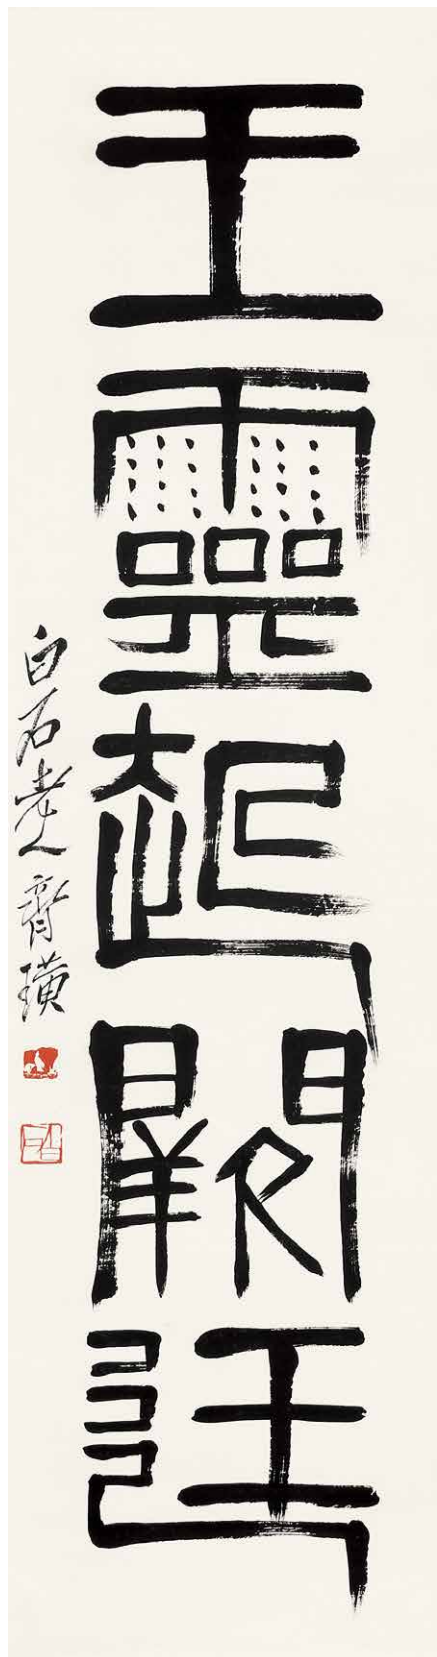 王靈起闕廷
白石老人齊璜